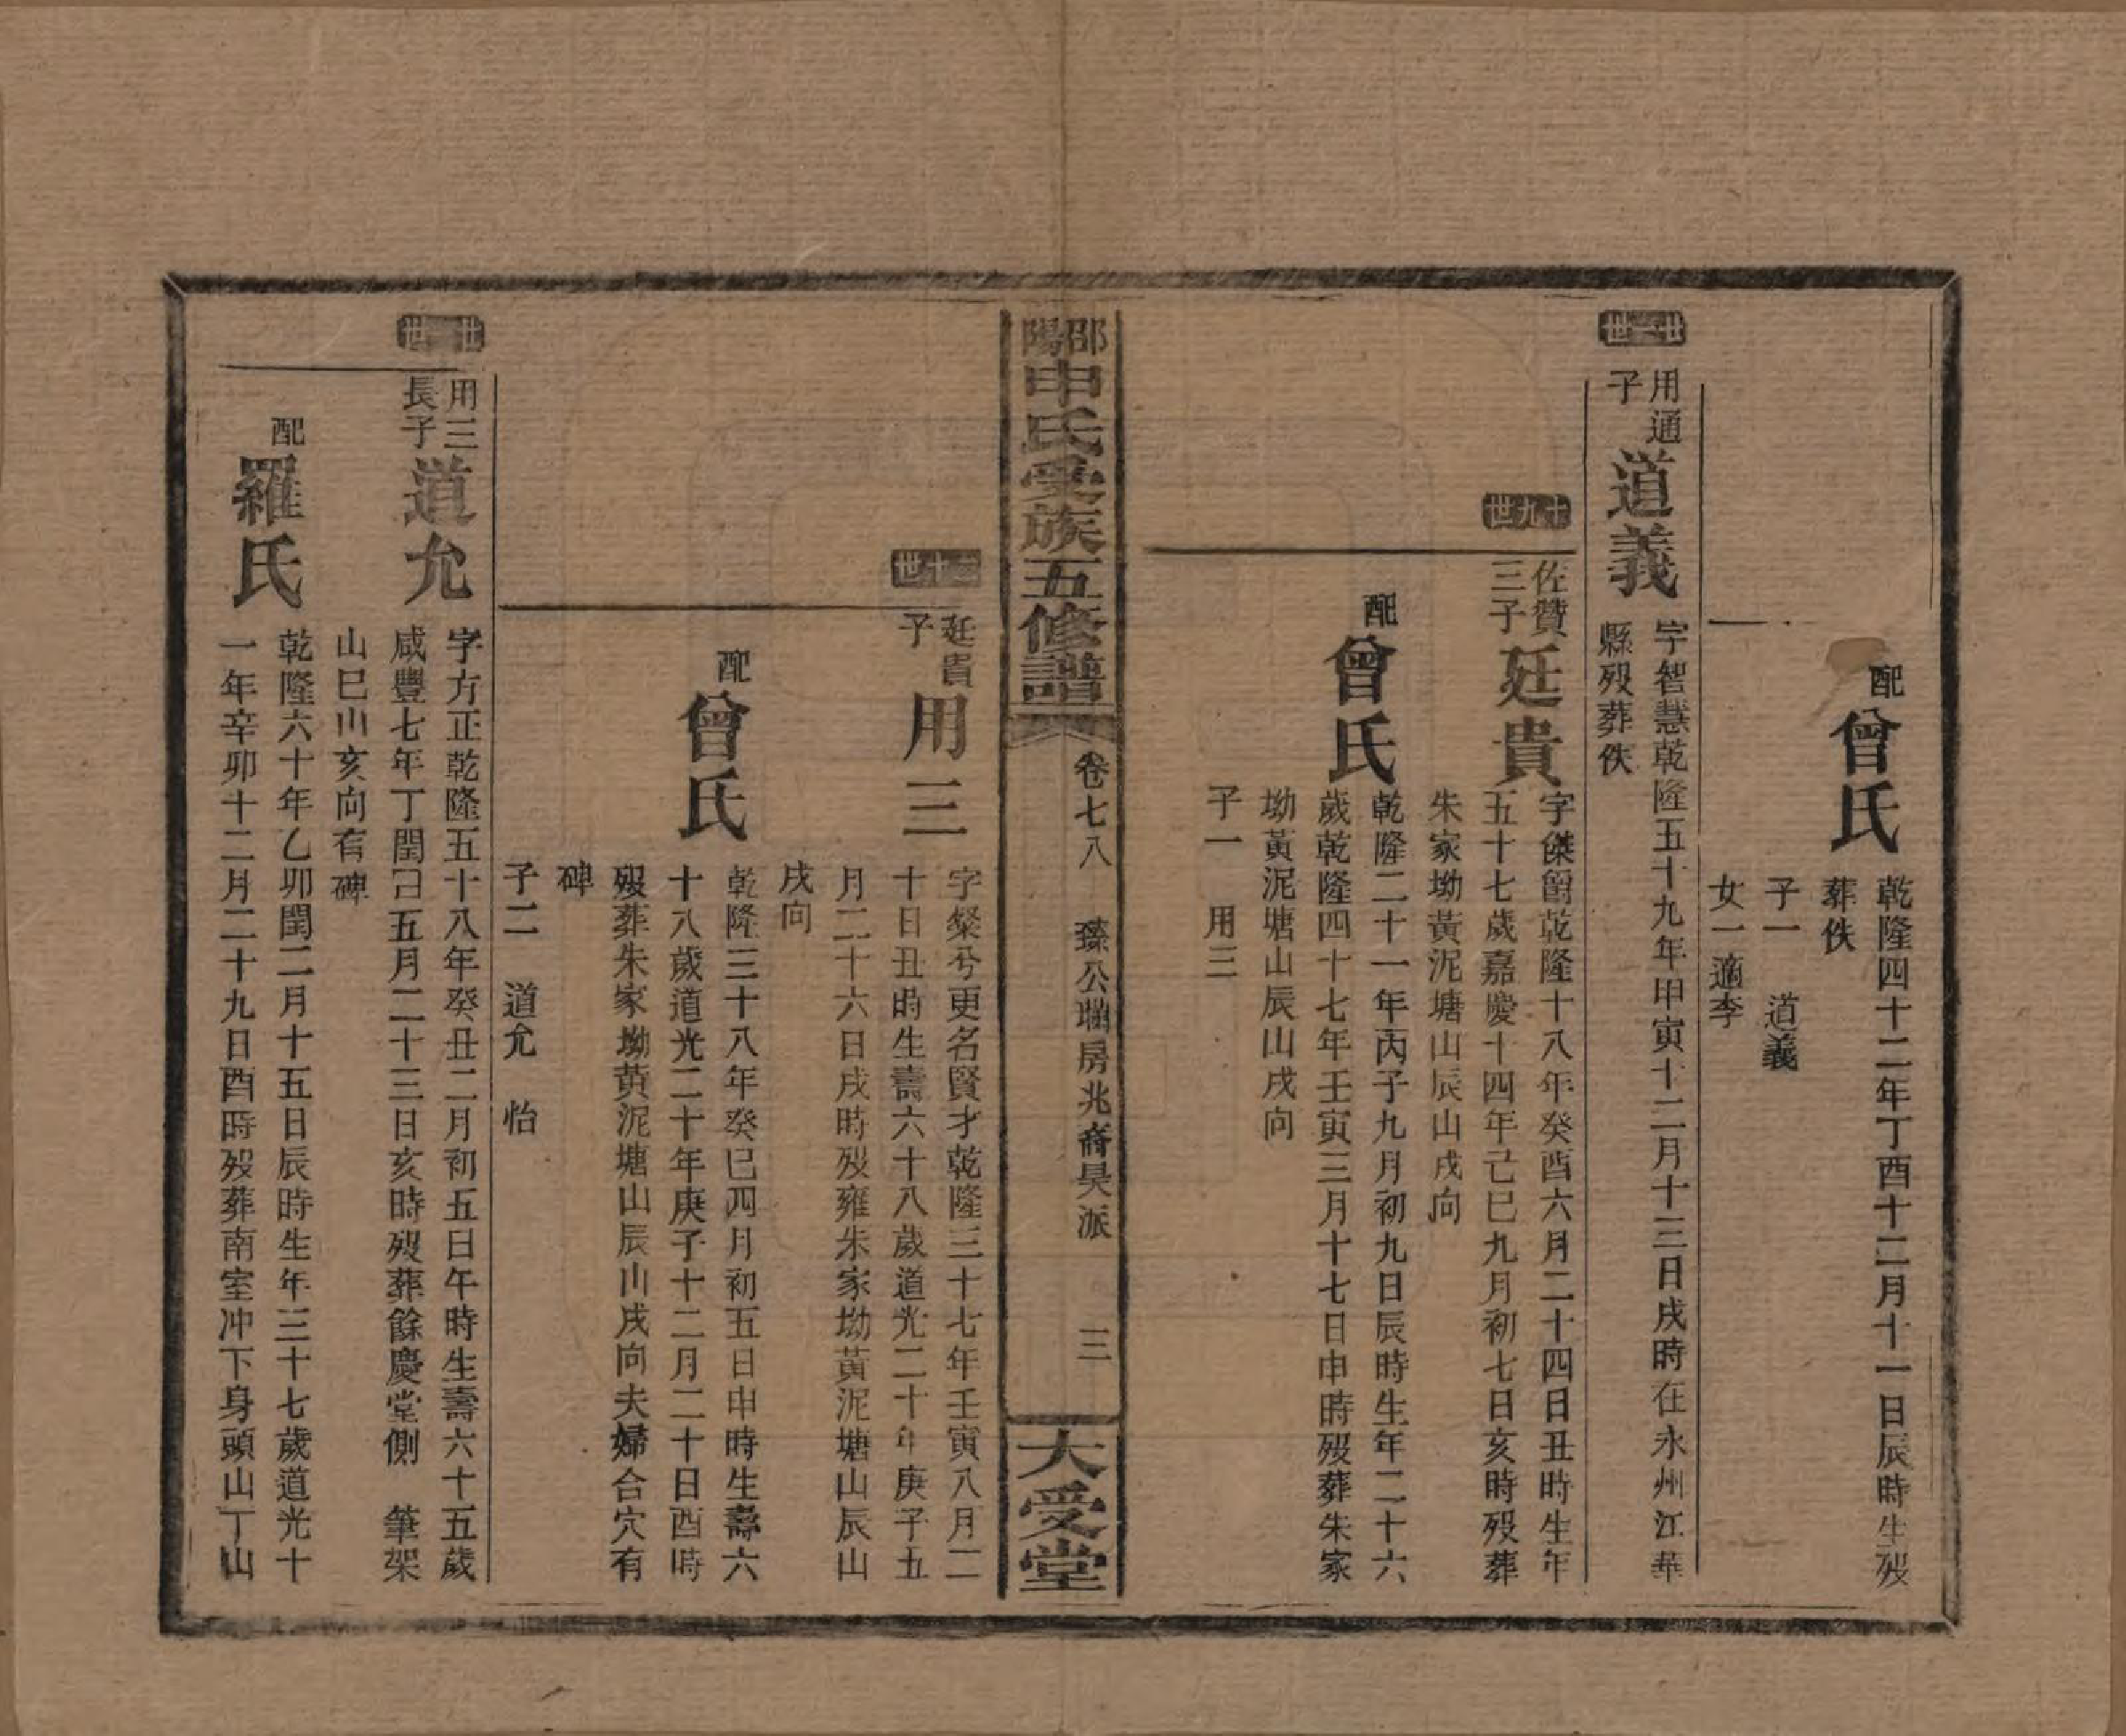 配
曾氏
乾隆四十二年丁酉十二月十一日辰時生歿
葬佚
子一 道義
女一適李
廿一世
用通
子
道義
字智慧乾隆五十九年甲寅十二月十三日戌時在永州江華
縣歿葬佚
十九世
佐贊
三子
廷貴
字傑爵乾隆十八年癸酉六月二十四日丑時生年
五十七歲嘉慶十四年己巳九月初七日亥時歿葬
朱家坳黃泥塘山辰山戌向
配
曾氏
乾隆二十一年丙子九月初九日辰時生年二十六
歲乾隆四十七年壬寅三月十七日申時歿葬朱家
坳黃泥塘山辰山戌向
子一 用三
邵陽
申氏受族五修譜
卷七八 臻公瑞房兆裔昊派 三
大受堂
二十世
廷貴
子
用三
字燦兮更名賢才乾隆三十七年壬寅八月二
十日丑時生壽六十八歲道光二十年庚子五
月二十六日戌時歿雍朱家坳黃泥塘山辰山
戌向
配
曾氏
乾隆三十八年癸巳四月初五日申時生壽六
十八歲道光二十年庚子十二月二十日酉時
歿葬朱家坳黃泥塘山辰山戌向夫婦合穴有
碑
子二 道允 怡
廿一世
用三
長子
道允
字方正乾隆五十八年癸丑二月初五日午時生壽六十五歲
咸豐七年丁閏巳五月二十三日亥時歿葬餘慶堂側 筆架
山巳山亥向有碑
配
羅氏
乾隆六十年乙卯閏二月十五日辰時生年三十七歲道光十
一年辛卯十二月二十九日酉時歿葬南室冲下身頭山丁山